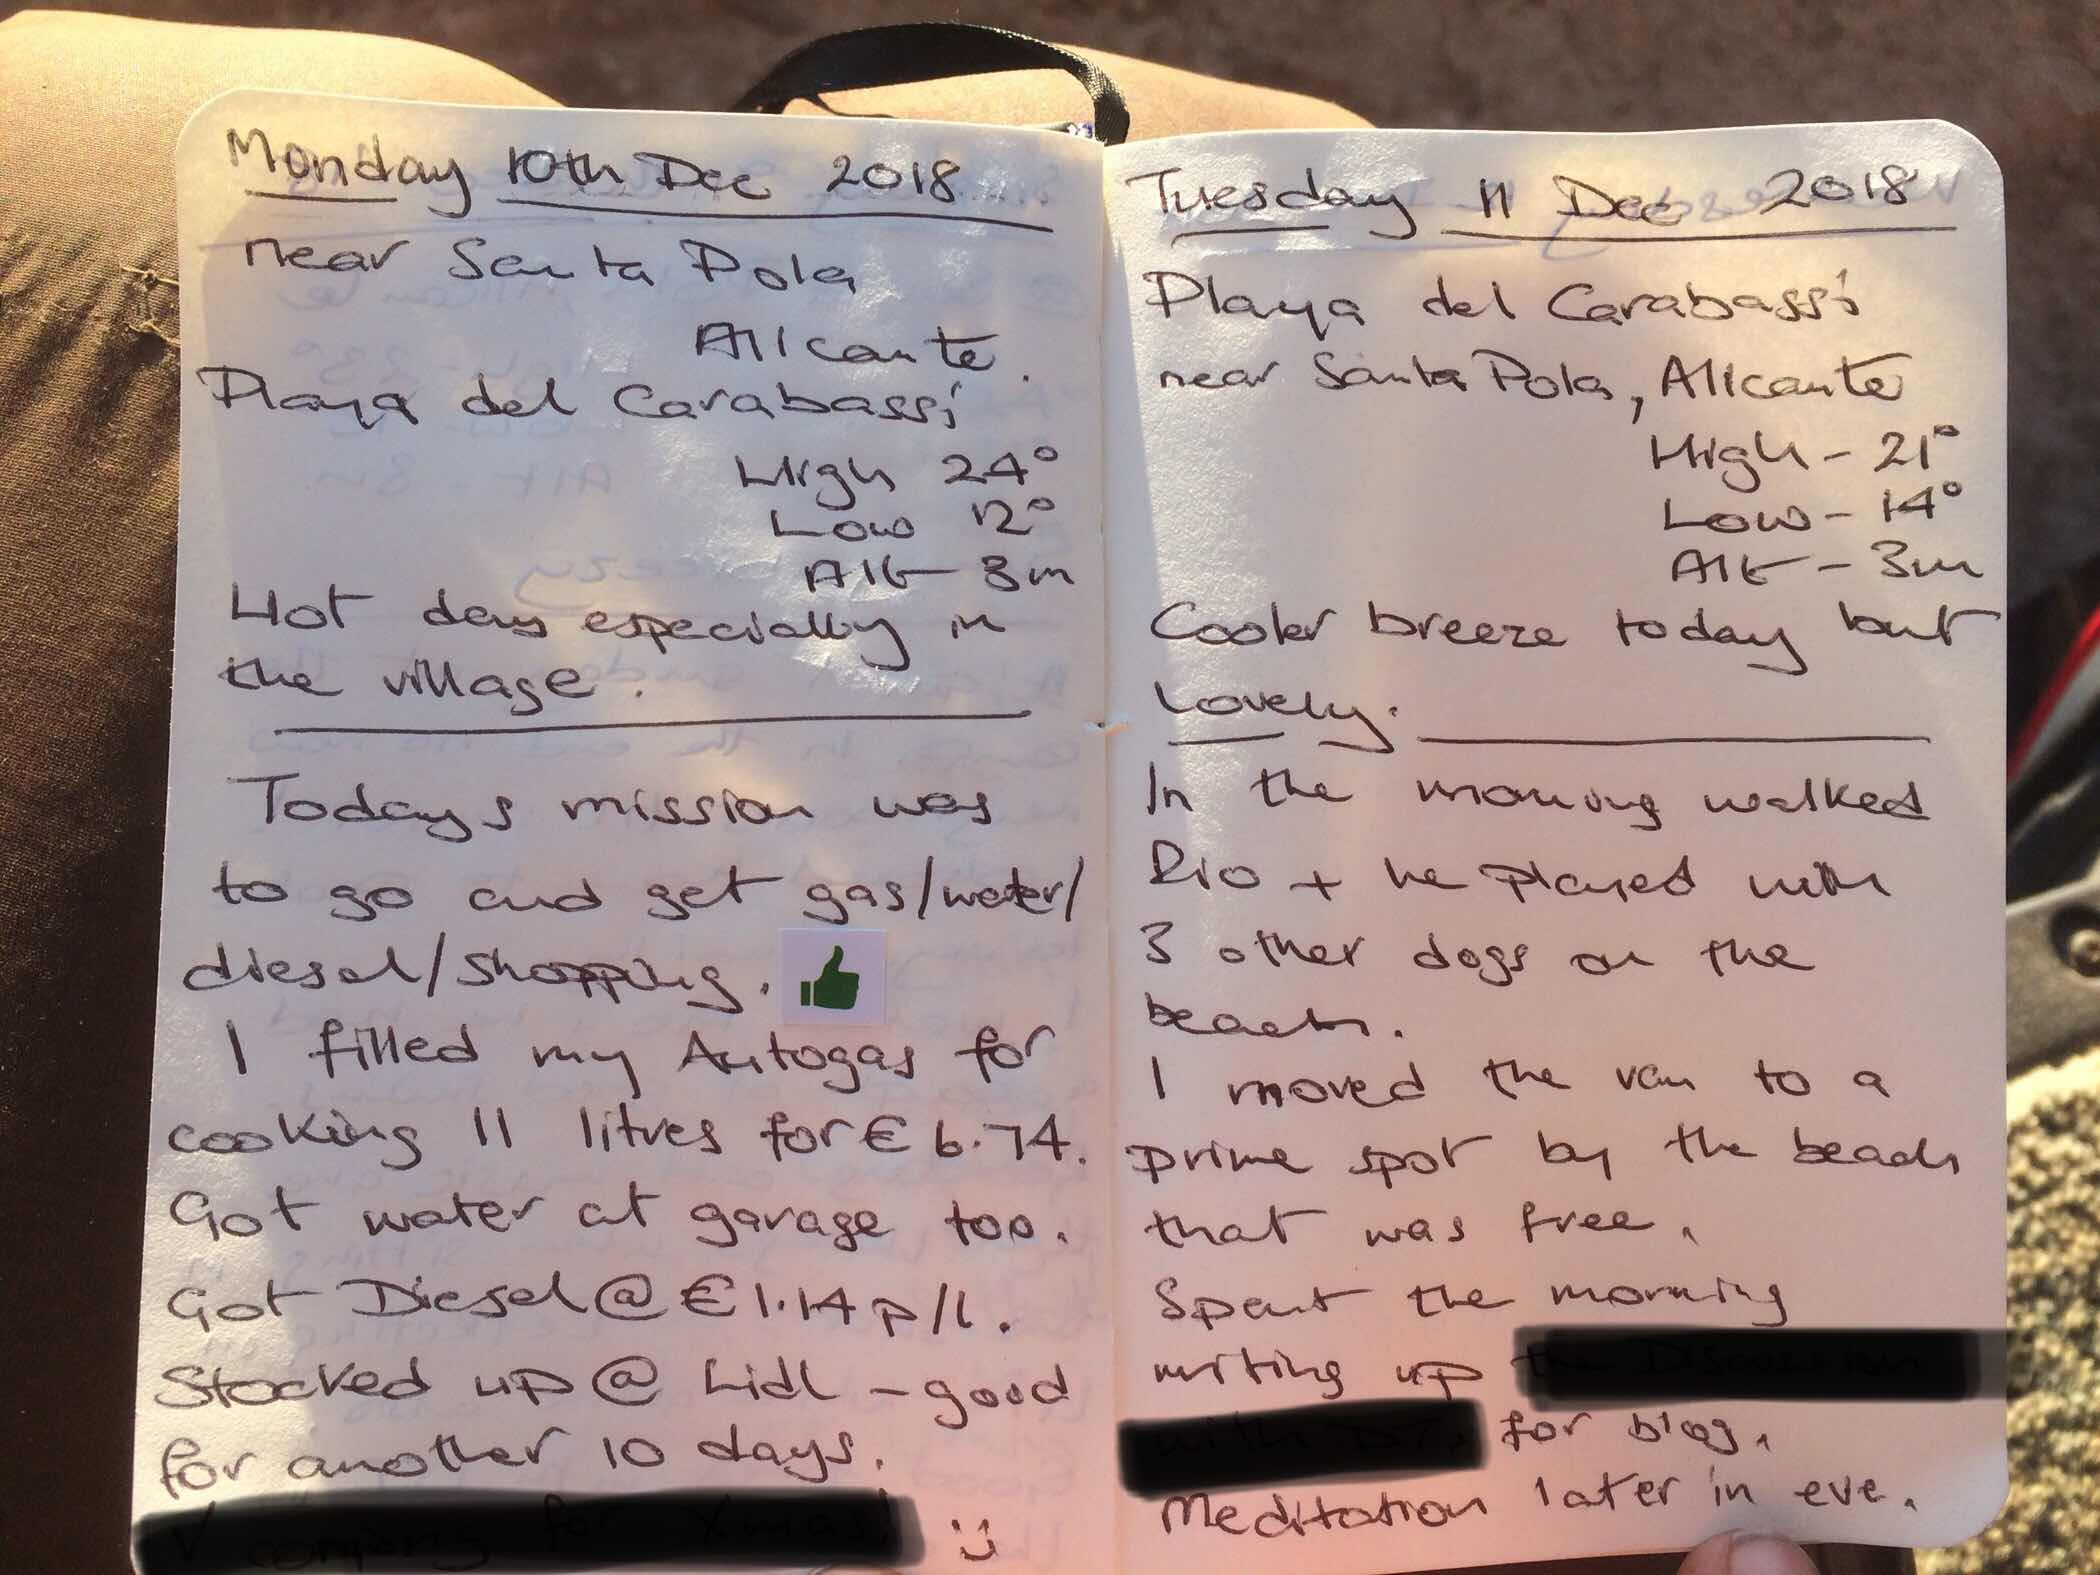 Monday 10th Dec 2018
near Santa Pola
Alicante.
Playa del Carabassí
High 24°
Low 12°
Alt - 3m
Hot day especially in
the village.
Todays mission was
to go and get gas/water/
diesel/shopping.
I filled my Autogas for
cooking 11 litres for € 6.74.
Got water at garage too.
Got Diesel @ €1.14 p/l.
Stocked up @ Lidl - good
for another 10 days.
Tuesday 11 Dec 2018
Playa del Carabassí
near Santa Pola, Alicante
High - 21°
Low - 14°
Alt - 3m
Cooler breeze today but
lovely.
In the morning walked
Rio + he played with
3 other dogs on the
beach.
I moved the van to a
prime spot by the beach
that was free.
Spent the morning
writing up
for blog.
Meditation later in eve.